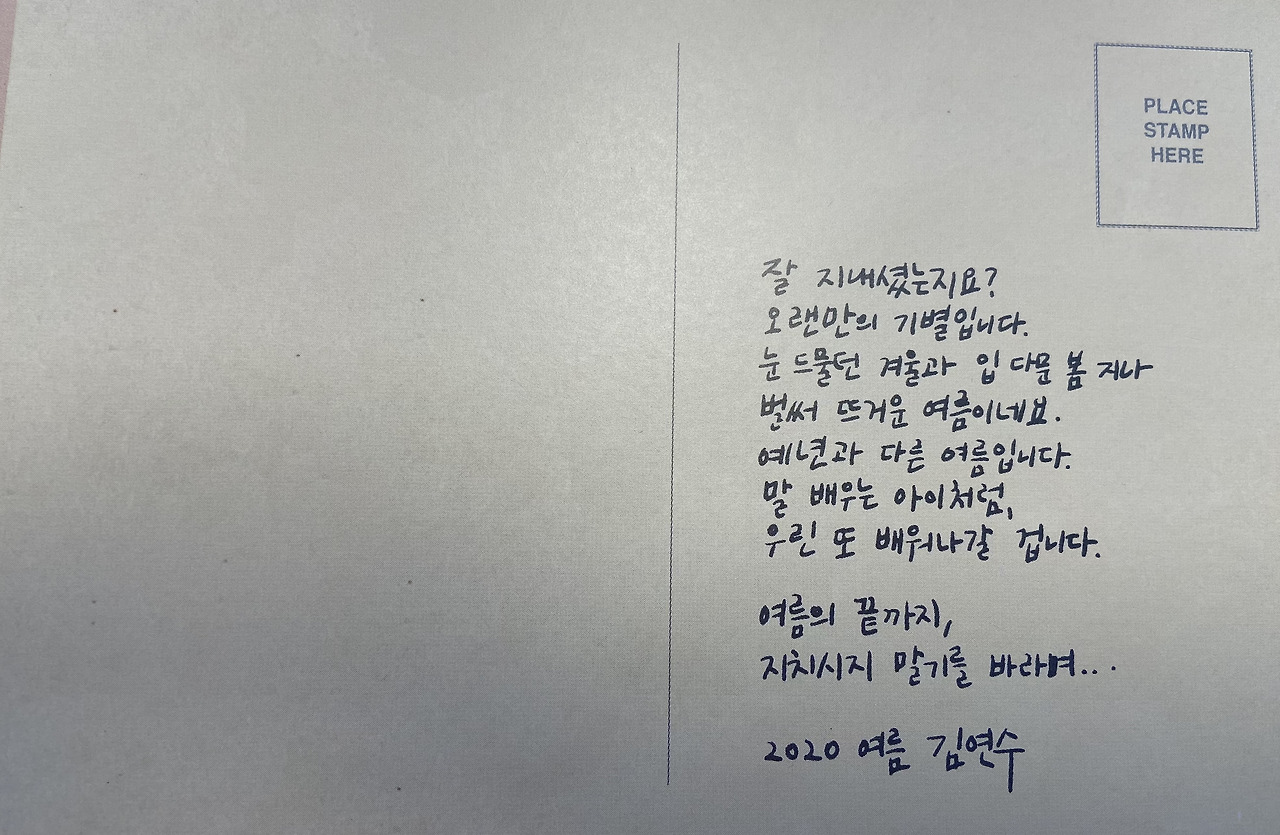 PLACE
STAMP
HERE
잘 지내셨는지요?
오랜만의 기별입니다.
눈 드물던 겨울과 입 다문 봄 지나
벌써 뜨거운 여름이네요.
예년과 다른 여름입니다.
말 배우는 아이처럼,
우린 또 배워나갈 겁니다.
여름의 끝까지,
지치시지 말기를 바라며...
2020 여름 김연수